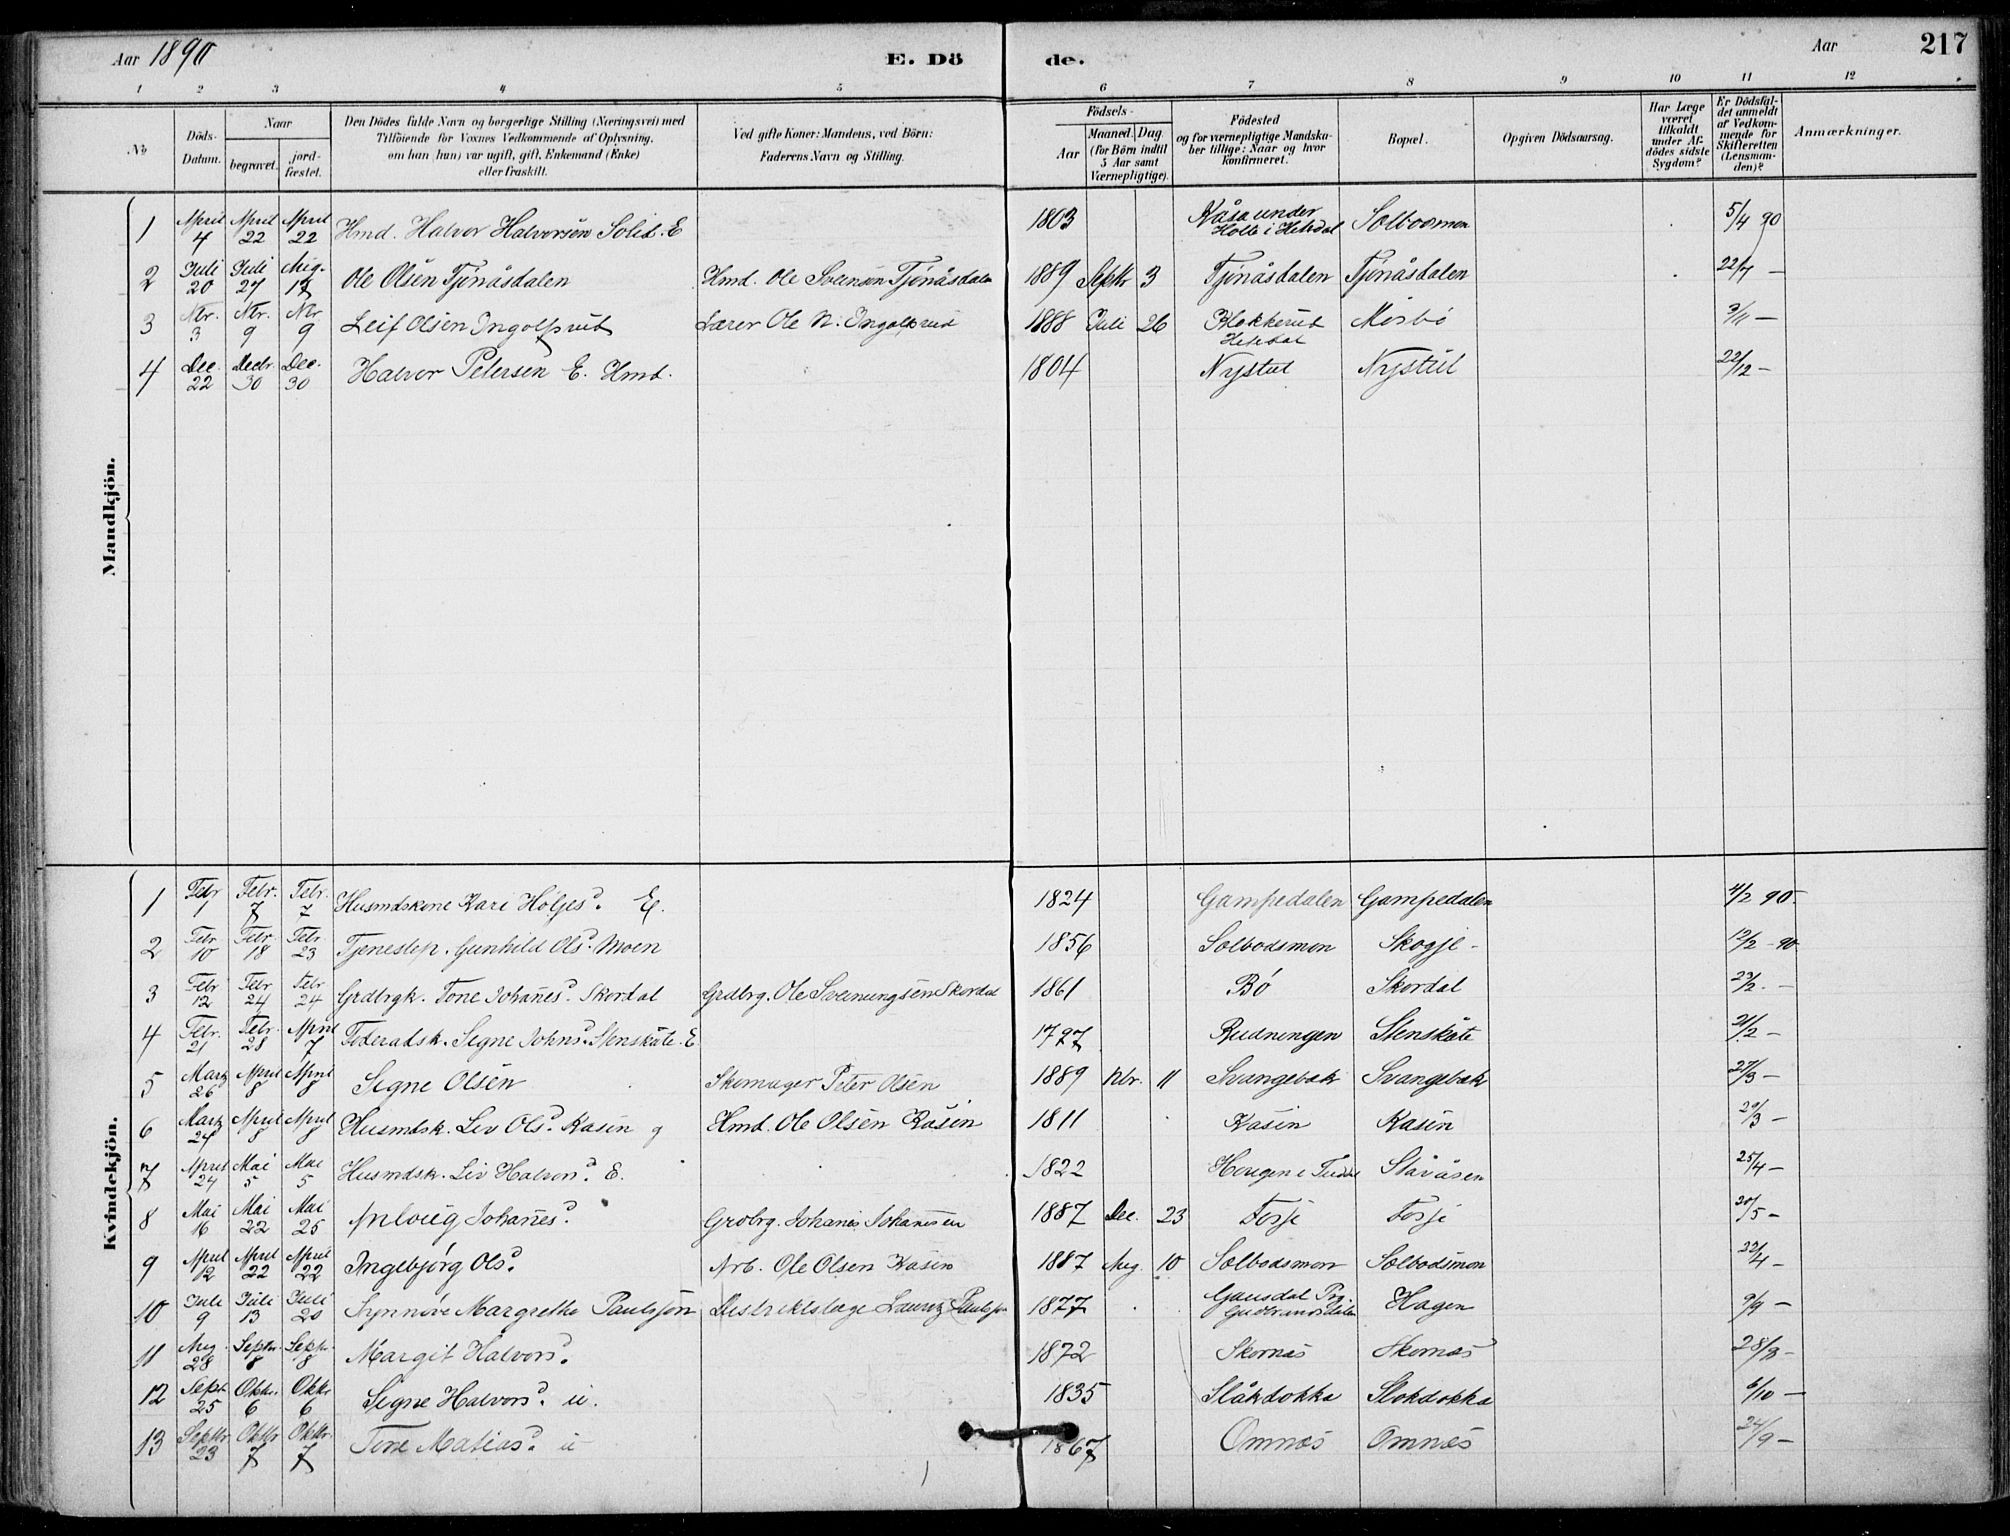 Aar 1890 E. Dö de. Aar 217
1 2 3 4 5 6 7 8 9 10 11 12
No Döds-Datum. Naar begravet. jord-fæstet. Den Dödes fulde Navn og borgerlige Stilling (Næringsvei) med Tilföiende for Voxnes Vedkommende af Oplysning, om han (hun) var ugift, gift, Enkemand (Enke) eller fraskilt. Ved gifte Koner: Mandens, ved Börn: Faderens Navn og Stilling. Födsels- Aar Maaned. Dag. (for Börn indtil 5 Aar samt Værnepligtige). Födested og for værnepligtige Mandskaber tillige: Naar og hvor konfirmeret. Bopæl. Opgiven Dödsaarsag. Har Læge været tilkaldt under Afdödes sidste Sygdom? Er Dödsfaldet anmeldt af Vedkommende for Skifteretten (Lensmanden)? Anmærkninger.
Mandkjön.
1 April 4 April 22 April 22 Hmd. Halvor Halvorsen Solid. E 1803 Kåsa under Holte i Hitterdal Solbodsmon 5/4 90
2 Juli 20 Juli 27 Aug. 17 Ole Olsen Tjönåsdalen Hmd. Ole Svensen Tjönåsdalen 1889 Septbr 3 Tjönåsdalen Tjönåsdalen 22/7 —
3 Nbr. 3 Nbr. 9 Nbr 9 Leif Olsen Ingolfsrud Lærer Ole N. Ingolfsrud 1888 Juli 26 Blekkerud Mosbö 3/11 —
4 Dec. 22 Decbr. 30 Dec. 30 Halvor Petersen E. Hmd. 1804 Nystul Nystul 22/12 —
Kvindekjön.
1 Febr 1 Febr. 7 Febr. 7 Husmdskone Kari Höljesd. E. 1824 Gampedalen Gampedalen 4/2 90.
2 Febr 10 Febr. 18 Febr. 23 Tjenestep. Gunhild Olsd. Moen 1856 Solbodsmon Skogje - 12/2 - 90
3 Febr 12 Febr 24 Febr 24 Grdbrgk. Tone Johannesd. Skordal Grdbrg. Ole Sveinungsen Skordal 1861 Bö Skordal 23/2. —
4 Febr. 21 Febr. 28 April 7 Föderadsk. Signe Johnsd. Stenskåte. E 1797 Rudningen Stenskåte 21/2 —
5 Marts 26 April 8 April 8 Signe Olsen Skomager Peter Olsen 1889 Nbr. 11 Svangebæk Svangebæk 27/3 —
6 Marts 24 April 8 April 8 Husmdsk. Liv Olsd. Kasin g Hmd. Ole Olsen Kåsin 1811 Kasin Kasin 29/3 —
7 April 24 Mai 5 Mai 5 Husmdsk. Liv Halvorsd. E. 1822 Haugen i Tuddal Ståråsen 25/4 —
8 Mai 16 Mai 22 Mai 25 Anlaug Johannesd. Grdbrg. Johanes Johannesen 1887 Dec. 23 Fosje Fosje 20/5 —
9 April 12 April 22 April 22 Ingebjörg Olsd. Arb. Ole Olsen Kåsin 1887 Aug. 10 Solbodsmon Solbodsmon 22/4 —
10 Juli 9 Juli 13 Juli 20 Synnöve Margrethe Paulssön Distriktslæge Laurtz Paulssn 1877 Gausdal Prg. Gudbrandsdalen Hagen 9/9 —
11 Aug. 28 Septbr. 8 Septr. 8 Margit Halvorsd. 1872 Skornæs Skornæs 28/8 —
12 Sept. 25 Oktbr. 6 Oktbr 6 Signe Halvorsd. u. 1835 Slåkdokka Slokdokka 6/10 —
13 Septbr 23 Oktbr 7 Oktbr. 7 Tone Matiasd. u — 1867 Omnæs Omnæs 24/9 —